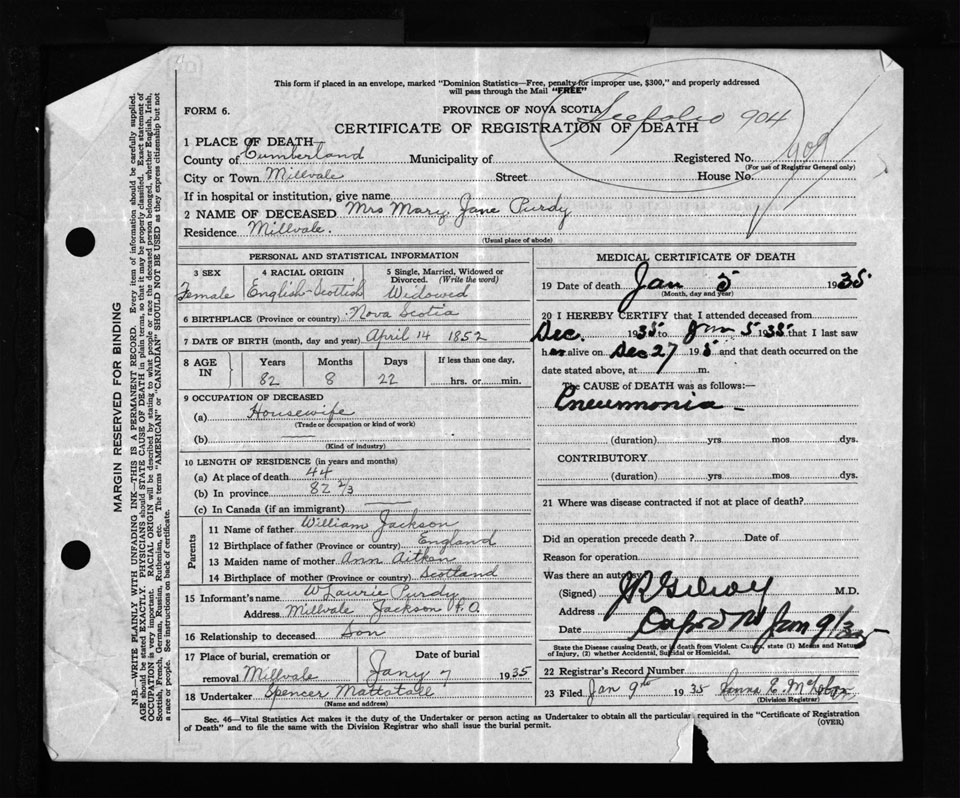 This form if placed in an envelope, marked "Dominion Statistics—Free, penalty for improper use, $300," and properly addressed
will pass through the Mail "FREE"
FORM 6.
PROVINCE OF NOVA SCOTIA
See folio 904
CERTIFICATE OF REGISTRATION OF DEATH
1 PLACE OF DEATH
County of Cumberland Municipality of Registered No. 909
(For use of Registrar General only)
City or Town Millvale Street House No.
If in hospital or institution, give name
2 NAME OF DECEASED Mrs Mary Jane Purdy
Residence Millvale.
(Usual place of abode)
PERSONAL AND STATISTICAL INFORMATION
3 SEX
Female
4 RACIAL ORIGIN
English-Scottish
5 Single, Married, Widowed or
Divorced. (Write the word)
Widowed
6 BIRTHPLACE (Province or country) Nova Scotia
7 DATE OF BIRTH (month, day and year) April 14 1852
8 AGE IN
Years Months Days If less than one day,
82 8 22 hrs. or min.
9 OCCUPATION OF DECEASED
(a) Housewife
(Trade or occupation or kind of work)
(b)
(Kind of industry)
10 LENGTH OF RESIDENCE (in years and months)
(a) At place of death 44
(b) In province 82 2/3
(c) In Canada (if an immigrant)
Parents
11 Name of father William Jackson
12 Birthplace of father (Province or country) England
13 Maiden name of mother Ann Aitken
14 Birthplace of mother (Province or country) Scotland
15 Informant's name W Laurie Purdy
Address Millvale Jackson P.O.
16 Relationship to deceased Son
17 Place of burial, cremation or Date of burial
removal Millvale Jany 7 1935
18 Undertaker Spencer Mattatall
(Name and address)
MEDICAL CERTIFICATE OF DEATH
19 Date of death Jan 5 1935
(Month, day and year)
20 I HEREBY CERTIFY that I attended deceased from
Dec. 1935 to Jan 5 35 that I last saw
her alive on Dec 27 and that death occurred on the
date stated above, at m.
The CAUSE of DEATH was as follows:—
Pneumonia
(duration) yrs. mos. dys.
CONTRIBUTORY
(duration) yrs. mos. dys.
21 Where was disease contracted if not at place of death?
Did an operation precede death? Date of
Reason for operation
Was there an autopsy
(Signed) M.D.
Address
Date Jan 9/35
State the Disease causing Death, or in death from Violent Causes, state (1) Means and Nature
of Injury, (2) whether Accidental, Suicidal or Homicidal.
22 Registrar's Record Number
23 Filed Jan 9th 1935
(Division Registrar)
Sec. 46—Vital Statistics Act makes it the duty of the Undertaker or person acting as Undertaker to obtain all the particulars required in the "Certificate of Registration
of Death" and to file the same with the Division Registrar who shall issue the burial permit.
(OVER)
MARGIN RESERVED FOR BINDING
N.B.—WRITE PLAINLY WITH UNFADING INK—THIS IS A PERMANENT RECORD. Every item of information should be carefully supplied.
AGE should be stated EXACTLY. PHYSICIANS should STATE CAUSE OF DEATH in plain terms, so that it may be properly classified. Exact statement of
OCCUPATION is very important. RACIAL ORIGIN will be described by stating to what people or race the deceased person belonged, whether English, Irish,
Scottish, French, German, Russian, Ruthenian, etc. The terms "AMERICAN" or "CANADIAN" SHOULD NOT BE USED as they express citizenship but not
a race or people. See instructions on back of certificate.